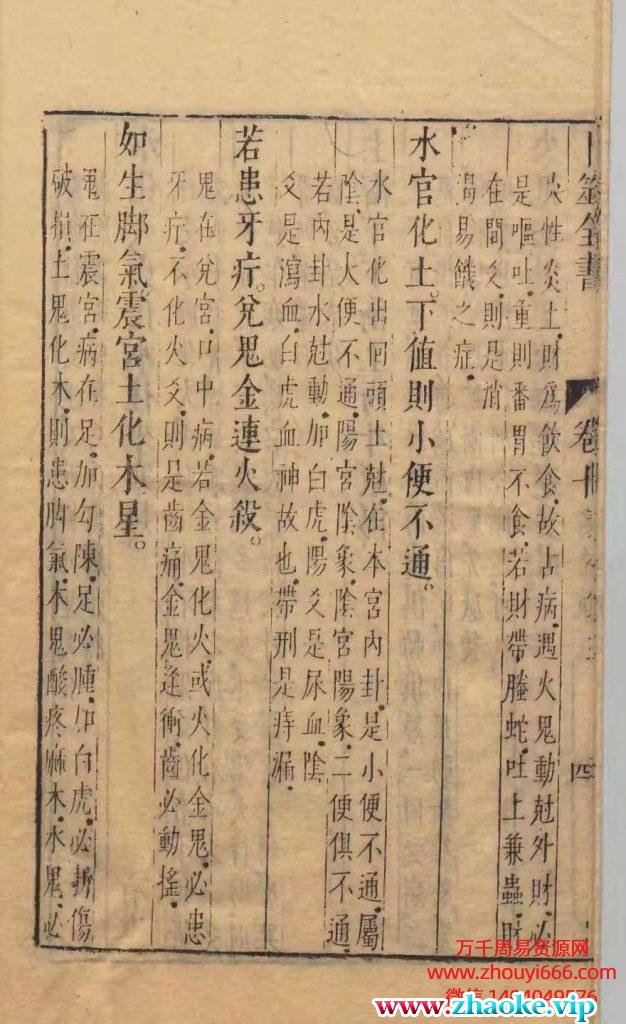 卜筮全書
卷十
四
火性炎上財爲飲食故占病遇火鬼動尅外財必
是嘔吐重則番胃不食若財帶螣蛇吐上兼蟲財
在間爻則是消
渴易饑之症
水官化土下值則小便不通。
水官化出囘頭土尅在本宮內卦是小便不通屬
陰是大便不通陽宮陰象陰宮陽象二便俱不通
若內卦水尅動加白虎陽爻是尿血陰
爻是瀉血白虎血神故也帶刑是痔漏
若患牙疔。兌鬼金連火殺。
鬼在兌宮口中病若金鬼化火或火化金鬼必患
牙疔不化火爻則是齒痛金鬼逢衝齒必動搖
如生脚氣。震宮土化木星。
鬼在震宮病在足加勾陳足必腫加白虎必折傷
破損土鬼化木則患脚氣木鬼酸疼麻木水鬼必
万千周易资源网
www.zhouyi666.com
微信1494049576
www.zhaoke.vip